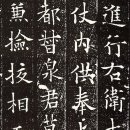 進行右衛大
仗内供奉上
都督泉君墓
兼撿挍相王